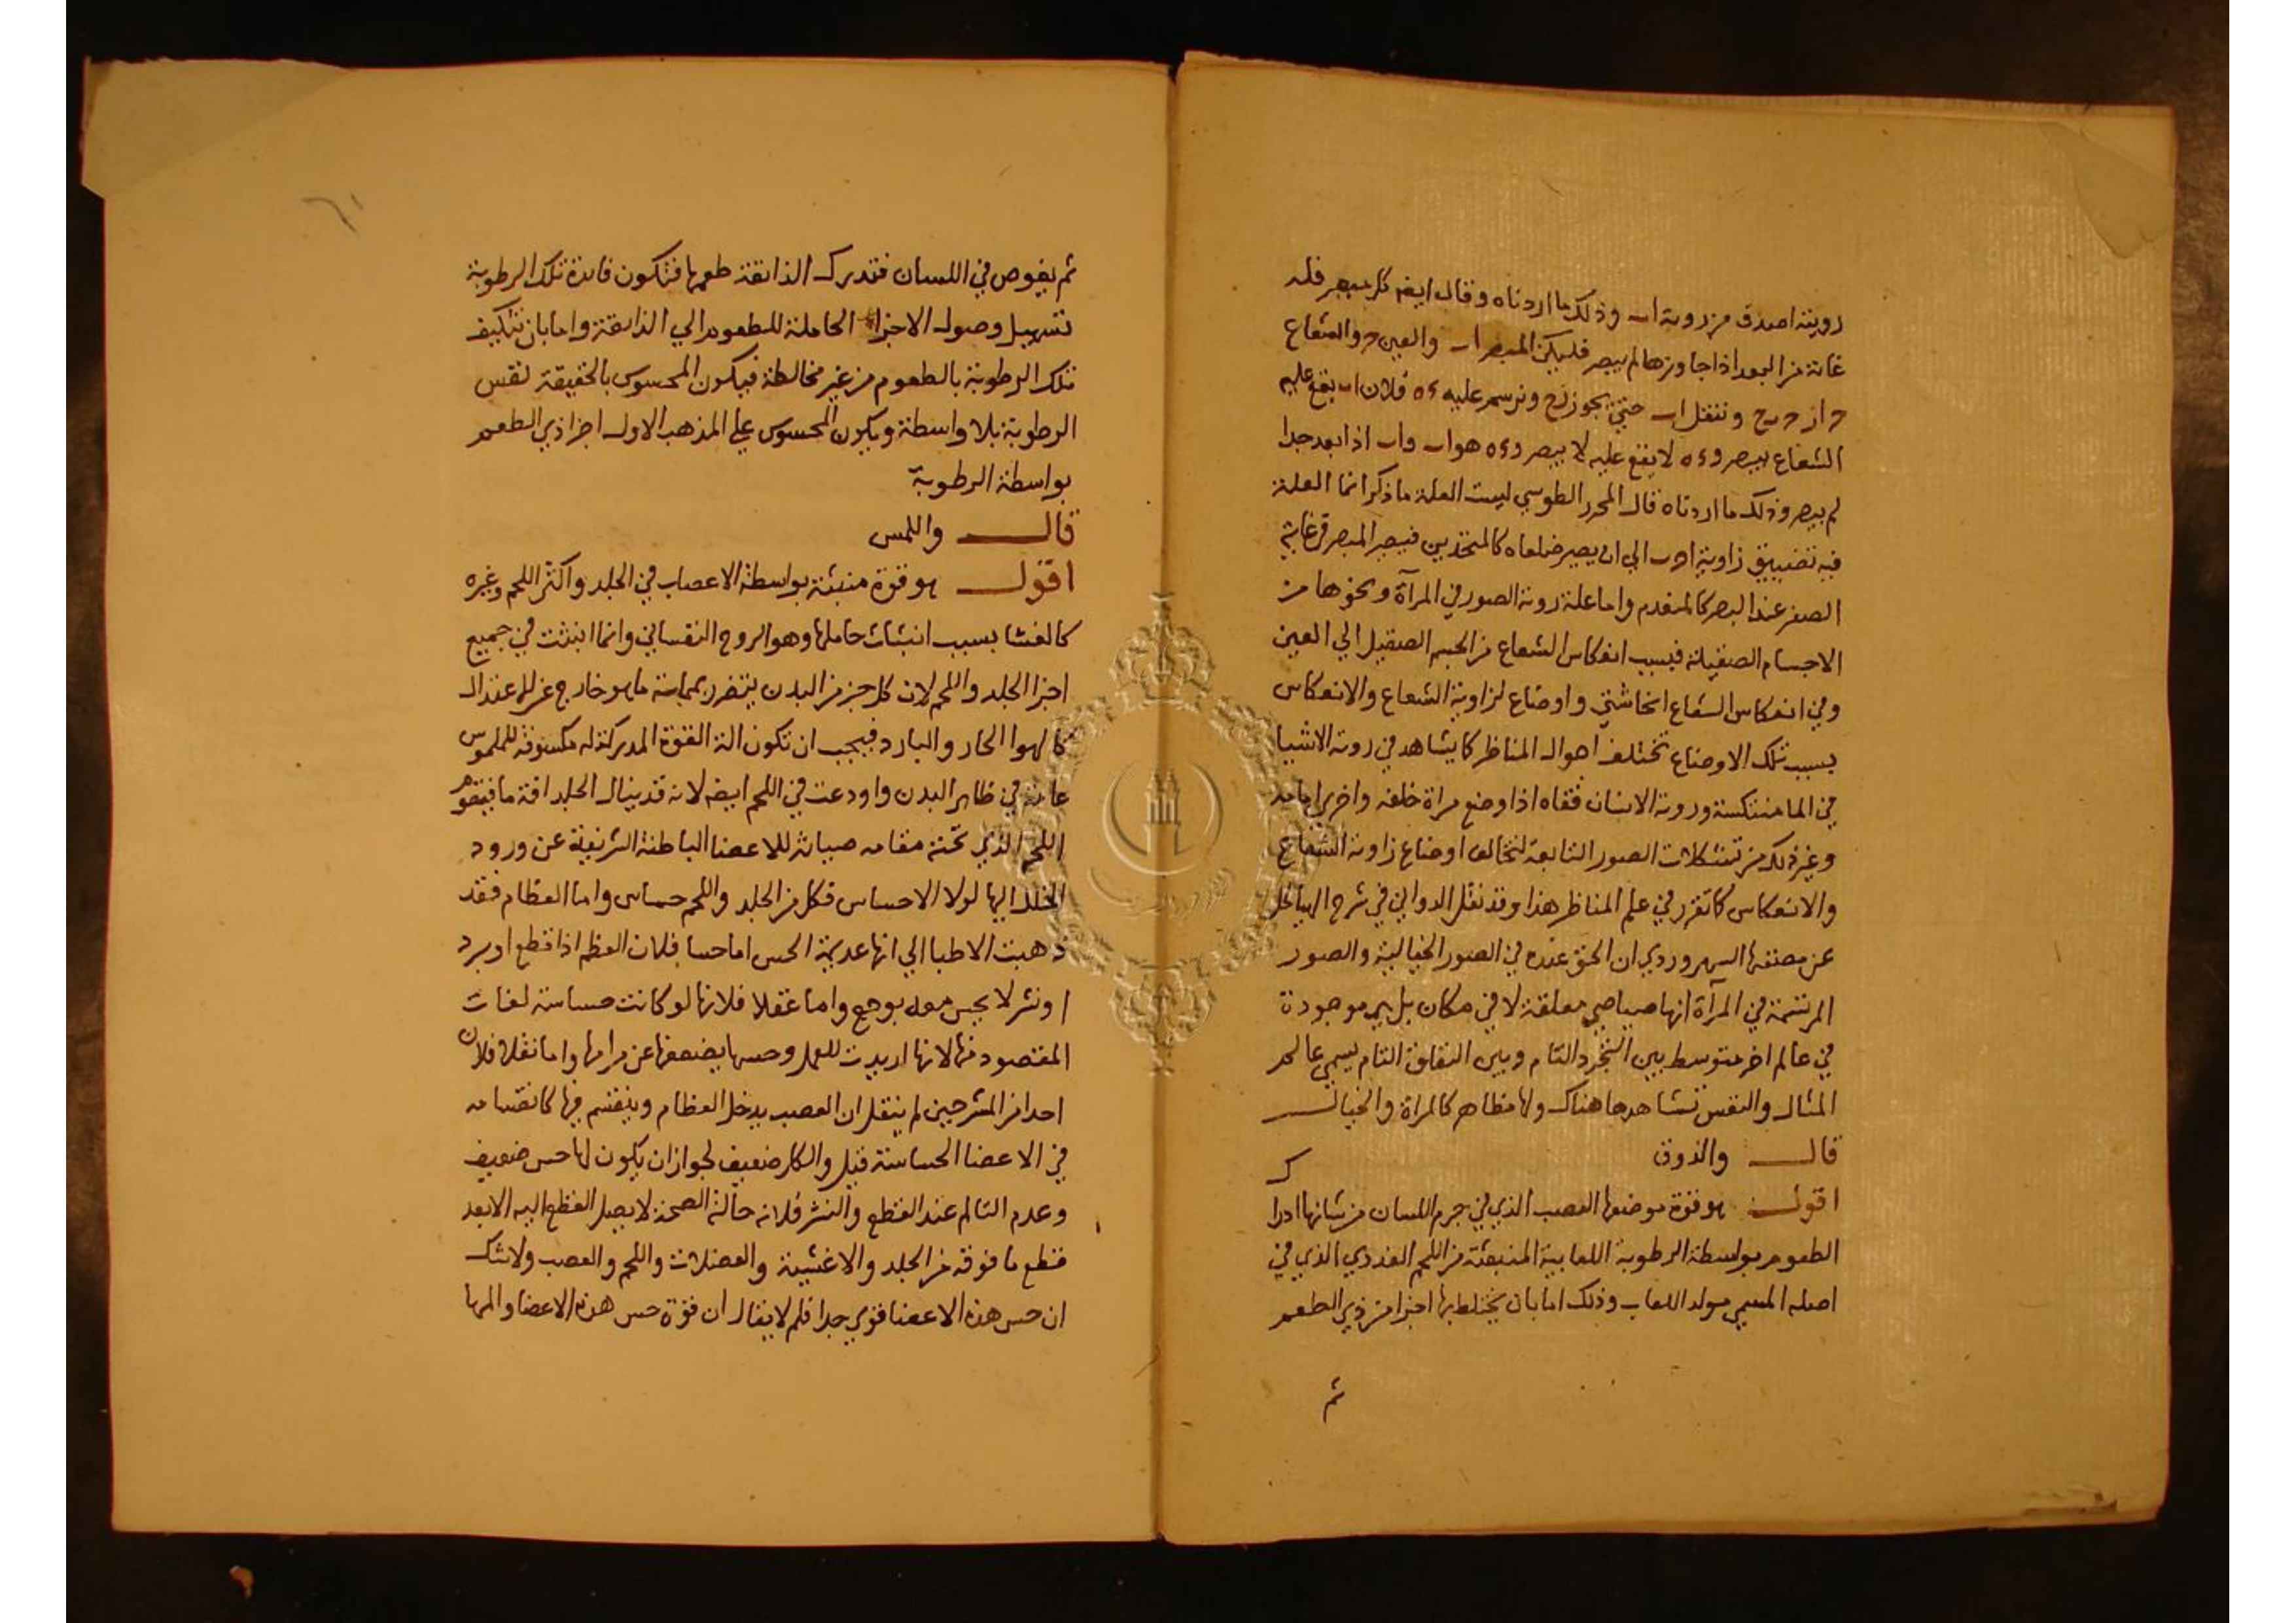 رويته اصدق من روية ا ب وذلك ما اردناه وقال ايضا كل مبصر فله
غاية من البعد اذا جاوزها لم يبصر فليكن المبصر ا ب والعين ح والشعاع
وننقل ا ب حتى يجوز ونرسم عليه ه ء فلان ا ب يقع عليه
الشعاع يبصر و ء ه لا يقع عليه لا يبصر و ء ه هو ا ب و ا ب اذا بعد جدا
لم يبصر وذلك ما اردناه قال المحرر الطوسي ليست العلة ما ذكر انما العلة
فيه تضييق زاوية ا ح ب الي ان يصير ضلعاه كالمتحدين فيصير المبصر في غاية
الصغر عند البصر كما تقدم واما علة روية الصور في المرآة ونحوها من
الاجسام الصقيلة فبسبب انعكاس الشعاع من الجسم الصقيل الي العين
وفي انعكاس الشعاع انحا شتي واوضاع لزاوية الشعاع والانعكاس
بسبب تلك الاوضاع تختلف احوال المناظر كما يشاهد في روية الاشيا
في الما منتكسة وروية الانسان قفاه اذا وضع مراة خلفه واخري امامه
وغير ذلك من تشكلات الصور التابعة لتخالف اوضاع زاوية الشعاع
والانعكاس كما تقرر في علم المناظر هذا وقد نقل الدواني في شرح الهياكل
عن مصنفها السهروردي ان الحق عنده في الصور الخيالية والصور
المرتسمة في المرآة انها صياصي معلقة لا في مكان بل هي موجودة
في عالم اخر متوسط بين التجرد التام وبين التعلق التام يسمي عالم
المثال والنفس تشاهدها هناك ولها مظاهر كالمراة والخيال
قال والذوق
اقول هو قوة موضعها العصب الذي في جرم اللسان من شانها ادراك
الطعوم بواسطة الرطوبة اللعابية المنبعثة من اللحم الغددي الذي في
اصله المسمي مولد اللعاب وذلك اما بان يختلط بها اجزا من ذي الطعم
ثم
٦١
ثم يغوص في اللسان فتدرك الذائقة طعمها فتكون فائدة تلك الرطوبة
تسهيل وصول الاجزا الحاملة للطعوم الي الذائقة واما بان تتكيف
تلك الرطوبة بالطعوم من غير مخالطة فيكون المحسوس بالحقيقة نفس
الرطوبة بلا واسطة ويكون المحسوس علي المذهب الاول اجزا ذي الطعم
بواسطة الرطوبة
قال واللمس
اقول هو قوة منبثة بواسطة الاعصاب في الجلد واكثر اللحم وغيره
كالغشا بسبب انبثاث حاملها وهو الروح النفساني وانما انبثت في جميع
اجزا الجلد واللحم لان كل جزء من البدن يتضرر بمماسة ما هو خارج عن الاعتدال
كالهوا الحار والبارد فيجب ان تكون الة القوة المدركة له مكشوفة للملموس
عامة في ظاهر البدن واودعت في اللحم ايضا لانه قد ينال الجلد افة ما فيقوم
اللحم الذي تحته مقامه صيانة للاعضا الباطنة الشريفة عن ورود
الخلل اليها لولا الاحساس فكل من الجلد واللحم حساس واما العظام فقد
ذهبت الاطبا الي انها عديمة الحس اما حسا فلان العظم اذا قطع او برد
او نشر لا يحس معه بوجع واما عقلا فلانها لو كانت حساسة لفات
المقصود منها لانها اريدت للعمل وحسها يضعفها عن مرامها واما نقلا فلان
احدا من المشرحين لم ينقل ان العصب يدخل العظام وينقسم فيها كانقسامه
في الاعضا الحساسة قيل والكل ضعيف لجواز ان يكون لها حس ضعيف
وعدم التالم عند القطع والنشر فلانه حالة الصحة لا يصل القطع اليه الا بعد
قطع ما فوقه من الجلد والاغشية والعضلات واللحم والعصب ولا شك
ان حس هذه الاعضا قوي جدا فلم لا يقال ان قوة حس هذه الاعضا والمها